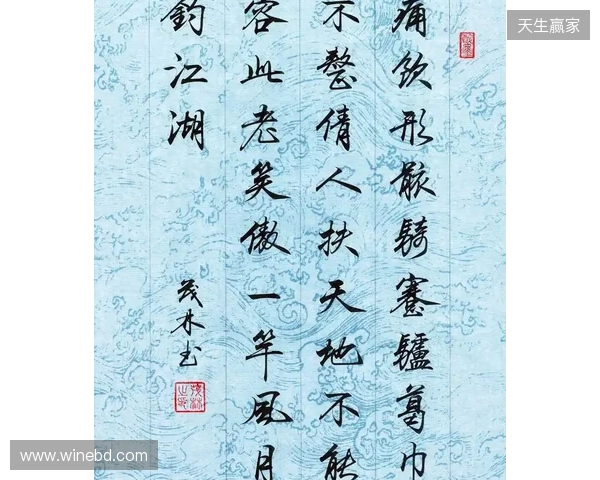 天生赢家
痛飲形骸騎蹇驢葛巾
不整倩人扶天地不能
容此老笑傲一竿風月
釣江湖
茂林书
www.winebd.com